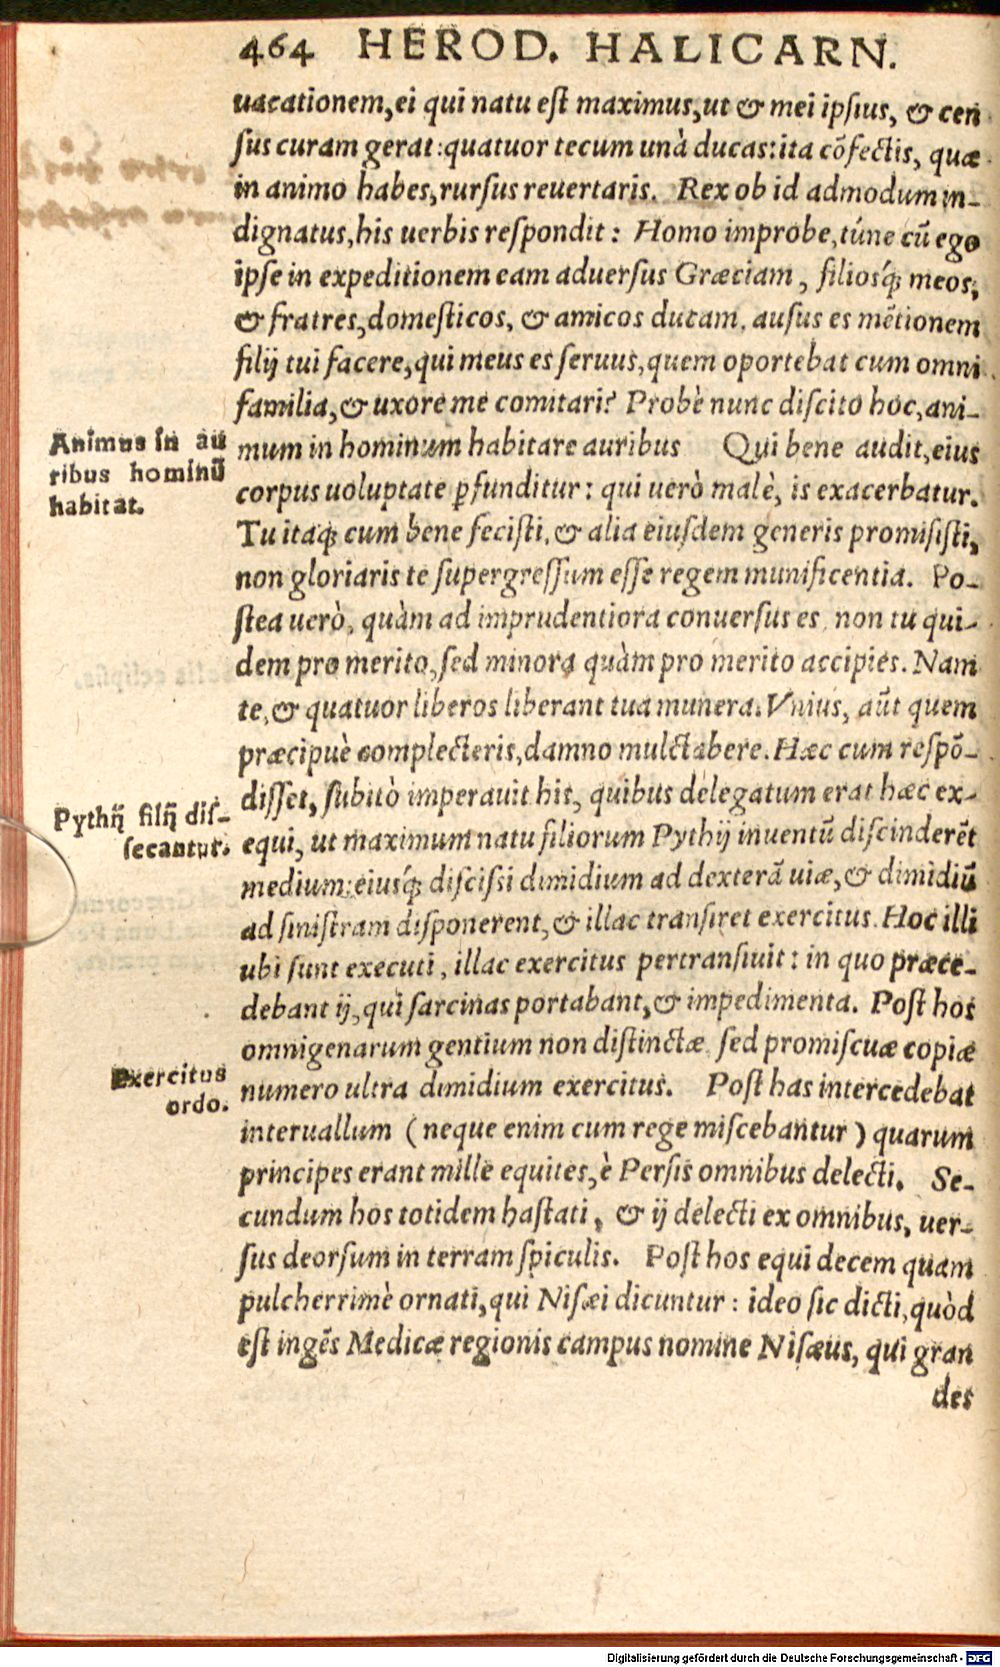 464 HEROD. HALICARN.
uacationem, ei qui natu eſt maximus, ut & mei ipſius, & cen
ſus curam gerat: quatuor tecum unà ducas: ita cõfectis, quæ
in animo habes, rurſus reuertaris. Rex ob id admodum in-
dignatus, his uerbis reſpondit: Homo improbe, túne cũ ego
ipſe in expeditionem eam aduerſus Græciam, filiosq́; meos,
& fratres, domeſticos, & amicos ducam, auſus es mẽtionem
filij tui facere, qui meus es ſeruus, quem oportebat cum omni
familia, & uxore me comitari? Probè nunc diſcito hoc, ani-
Animus in au
ribus hominũ
habitat.
mum in hominum habitare auribus Qui bene audit, eius
corpus uoluptate ꝑfunditur: qui uerò malè, is exacerbatur.
Tu itaq; cum bene feciſti, & alia eiuſdem generis promiſiſti,
non gloriaris te ſupergreſſum eſſe regem munificentia. Po-
ſtea uerò, quàm ad imprudentiora conuerſus es, non tu qui-
dem pro merito, ſed minora quàm pro merito accipies. Nam
te, & quatuor liberos liberant tua munera. Vnius, aũt quem
præcipuè complecteris, damno mulctabere. Hæc cum reſpõ-
Pythij filij diſ-
ſecantur.
diſſet, ſubitò imperauit his, quibus delegatum erat hæc ex-
equi, ut maximum natu filiorum Pythij inuentũ diſcinderẽt
medium: eiusq́; diſciſsi dimidium ad dexterã uiæ, & dimidiũ
ad ſiniſtram diſponerent, & illac tranſiret exercitus. Hoc illi
ubi ſunt executi, illac exercitus pertranſiuit: in quo præce-
debant ij, qui ſarcinas portabant, & impedimenta. Poſt hos
omnigenarum gentium non diſtinctæ, ſed promiſcuæ copiæ
Exercitus
ordo.
numero ultra dimidium exercitus. Poſt has intercedebat
interuallum (neque enim cum rege miſcebantur) quarum
principes erant mille equites, è Perſis omnibus delecti. Se-
cundum hos totidem haſtati, & ij delecti ex omnibus, uer-
ſus deorſum in terram ſpiculis. Poſt hos equi decem quam
pulcherrimè ornati, qui Niſæi dicuntur: ideo ſic dicti, quòd
eſt ingẽs Medicæ regionis campus nomine Niſæus, qui gran
des
Digitalisierung gefördert durch die Deutsche Forschungsgemeinschaft - DFG